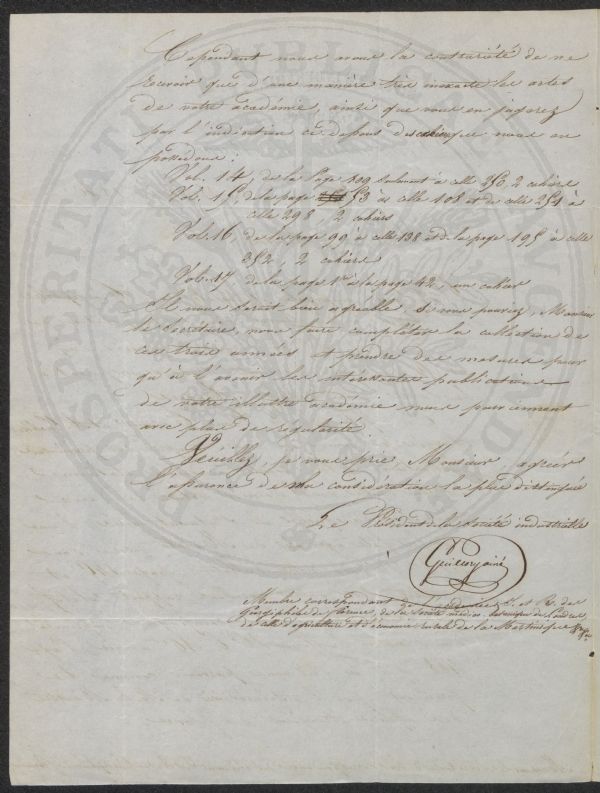 Cependant nous avons la contrariété de ne
recevoir que d'une manière très inexacte les actes
de votre académie, ainsi que vous en jugerez
par l'indication ci dessous des cahiers que nous en
possédons :
Vol. 14, de la page 309 seulement à celle 350, 2 cahiers
Vol. 15, de la page 53 à celle 108 et de celle 251 à
celle 298, 2 cahiers
Vol. 16, de la page 99 à celle 138 et de la page 195 à celle
352, 2 cahiers
Vol. 17, de la page 1re à la page 42, un cahier
Il nous serait bien agréable si vous pouviez, Monsieur
le Secrétaire, nous faire compléter la collection de
ces trois années et prendre des mesures pour
qu'à l'avenir les intéressantes publications
de votre illustre académie nous parviennent
avec plus de régularité.
Veuillez, je vous prie, Monsieur, agréer
l'assurance de ma considération la plus distinguée
Le Président de la Société industrielle
Guillory aîné
Membre correspondant de l'académie I. et R. des
Géorgophiles de Florence, de la Société médico-botanique de Londres,
de celle d'agriculture et d'économie rurale de la Martinique
PROSPERITATI